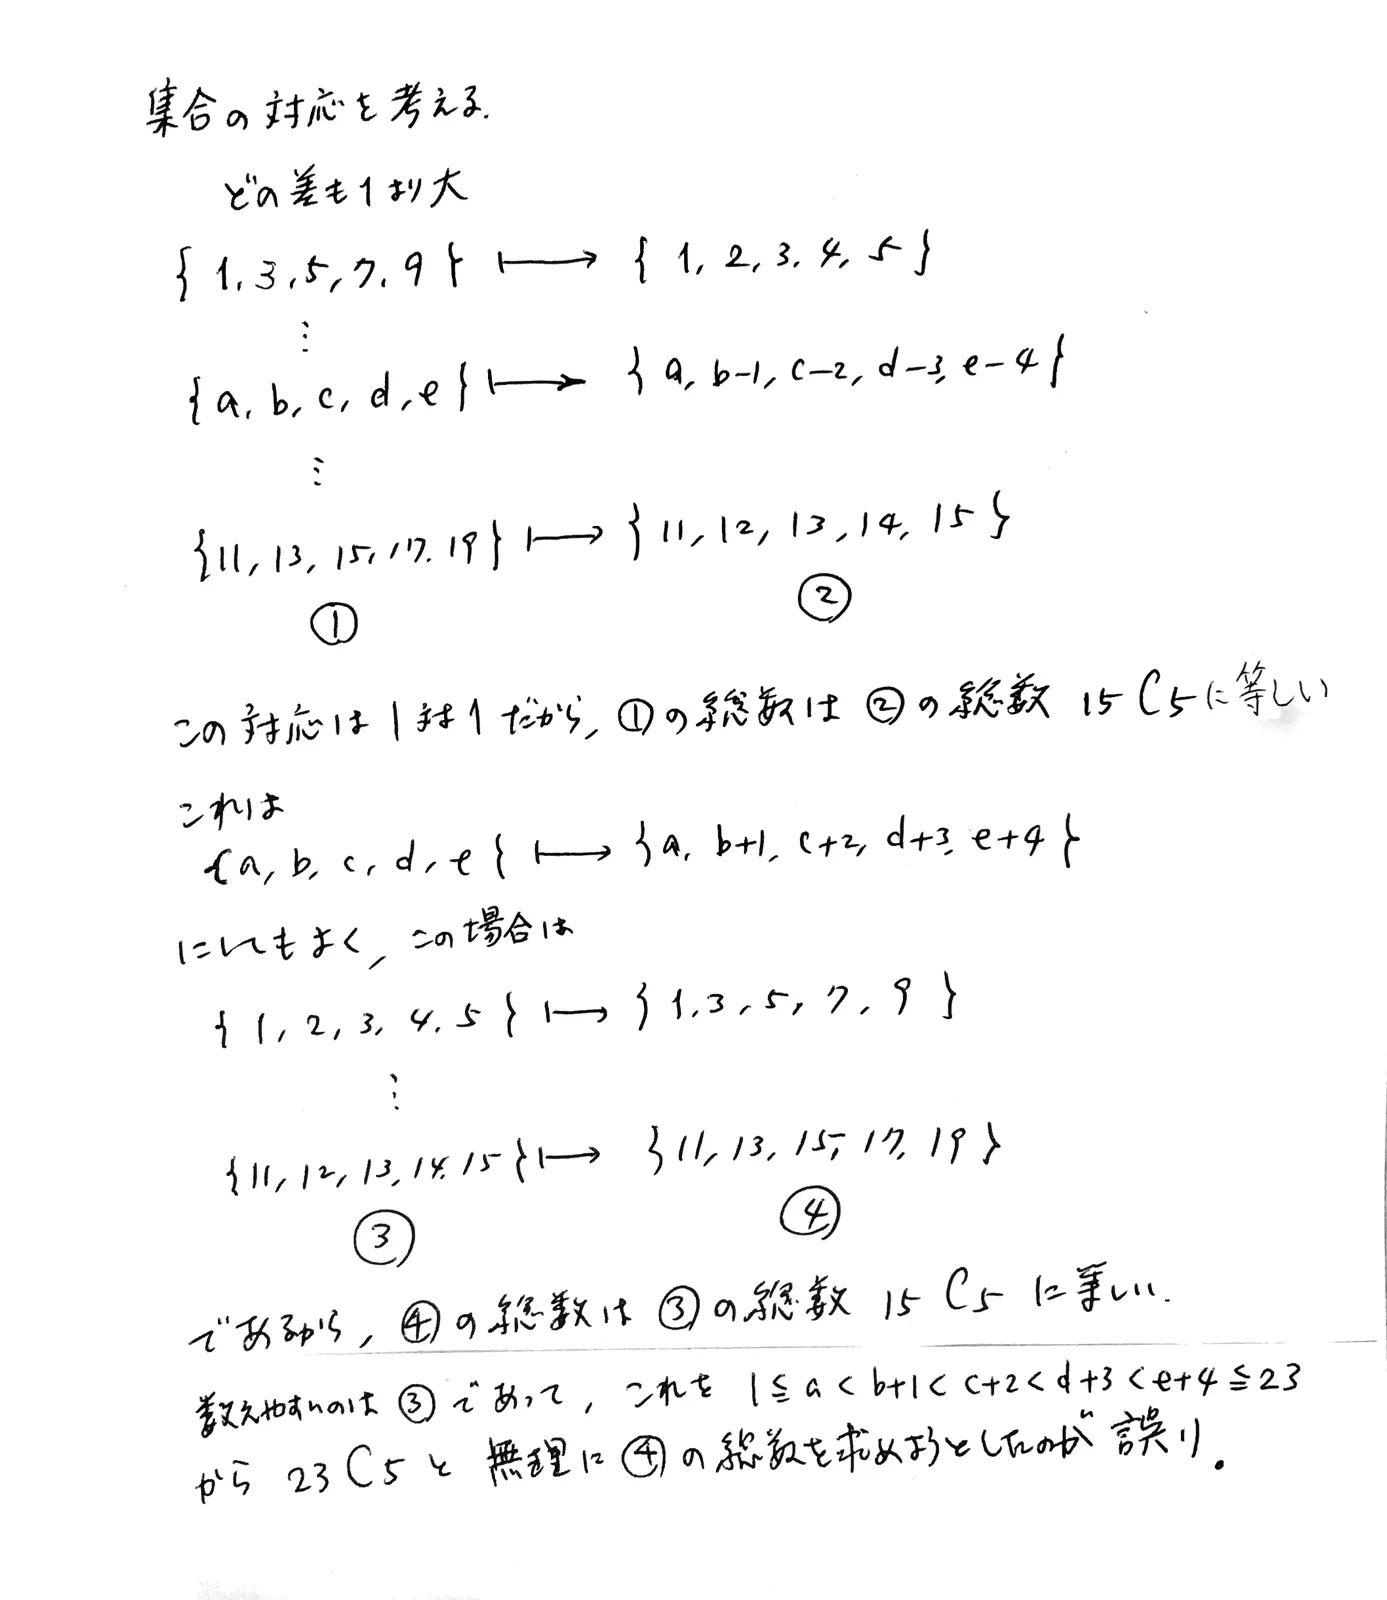 集合の対応を考える.
どの差も1より大
{ 1, 3, 5, 7, 9 } ⟼ { 1, 2, 3, 4, 5 }
⋮
{ a, b, c, d, e } ⟼ { a, b-1, c-2, d-3, e-4 }
⋮
{ 11, 13, 15, 17, 19 } ⟼ { 11, 12, 13, 14, 15 }
① ②
この対応は1対1だから, ①の総数は②の総数 15C5に等しい
これは
{ a, b, c, d, e } ⟼ { a, b+1, c+2, d+3, e+4 }
にしてもよく, この場合は
{ 1, 2, 3, 4, 5 } ⟼ { 1, 3, 5, 7, 9 }
⋮
{ 11, 12, 13, 14, 15 } ⟼ { 11, 13, 15, 17, 19 }
③ ④
であるから, ④の総数は③の総数 15C5 に等しい.
数えやすいのは③であって, これを 1≦a<b+1<c+2<d+3<e+4≦23
から 23C5 と 無理に④の総数を求めようとしたのが誤り.